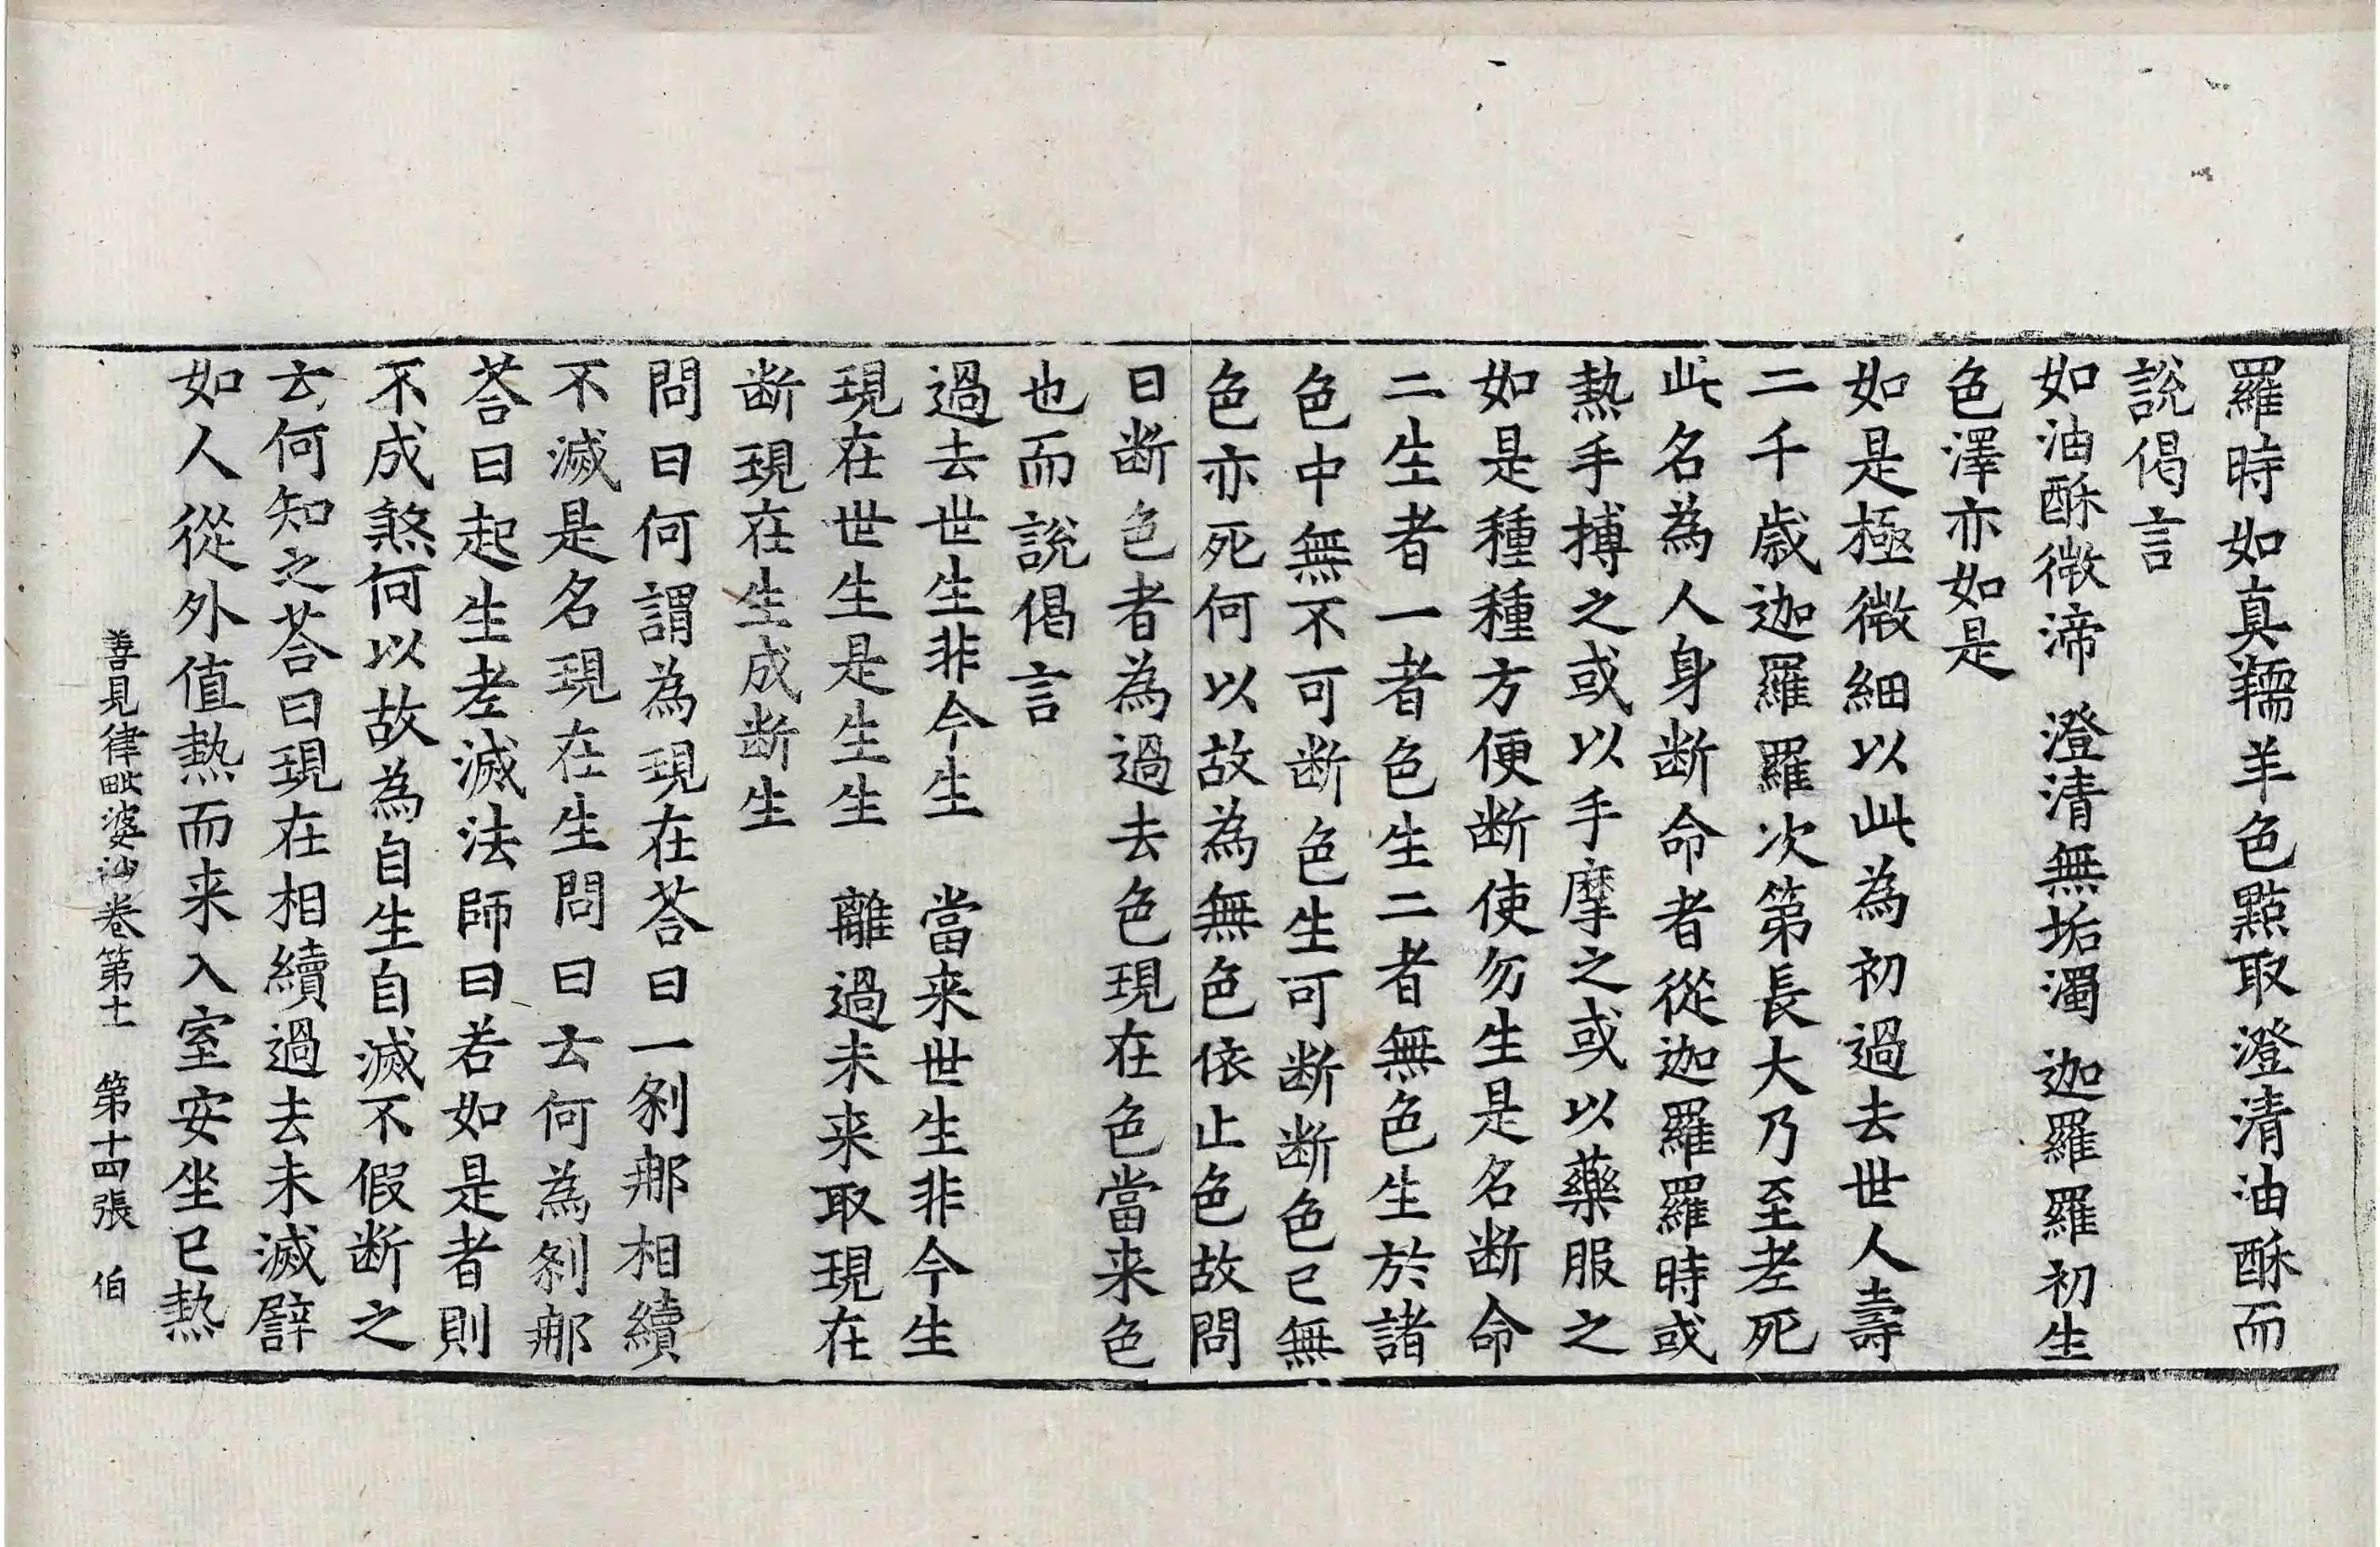 羅時如真𦎟羊色點取澄清油酥而
說偈言
如油酥微渧　澄清無垢濁　迦羅羅初生
色澤亦如是
如是極微細以此為初過去世人壽
二千歲迦羅羅次第長大乃至老死
此名為人身断命者從迦羅羅時或
熱手搏之或以手摩之或以藥服之
如是種種方便断使勿生是名断命
二生者一者色生二者無色生於諸
色中無不可断色生可断断色已無
色亦死何以故為無色依止色故問
曰断色者為過去色現在色當来色
也而說偈言
過去世生非今生　當来世生非今生
現在世生是生生　離過未来取現在
断現在生成断生
問曰何謂為現在荅曰一剎那相續
不滅是名現在生問曰云何為剎那
荅曰起生老滅法師曰若如是者則
不成煞何以故為自生自滅不假断之
云何知之荅曰現在相續過去未滅譬
如人從外值熱而来入室安坐已熱
善見律毗婆沙卷第十一　第十四張　伯